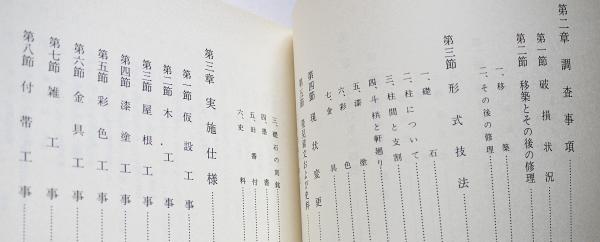 第二章 調査事項
第一節 破損状況
第二節 移築とその後の修理
一、移築
二、その後の修理
第三節 形式技法
一、礎石
二、柱について
三、柱間と支割
四、斗栱と軒廻り
五、漆塗
六、彩色
七、金具
第四節 現状変更
第五節 発見銘文および史料
三、礎石の間銘
四、墨書
五、旧番付
六、史料
第三章 実施仕様
第一節 仮設工事
第二節 木工事
第三節 屋根工事
第四節 漆塗工事
第五節 彩色工事
第六節 金具工事
第七節 雑工事
第八節 付帯工事